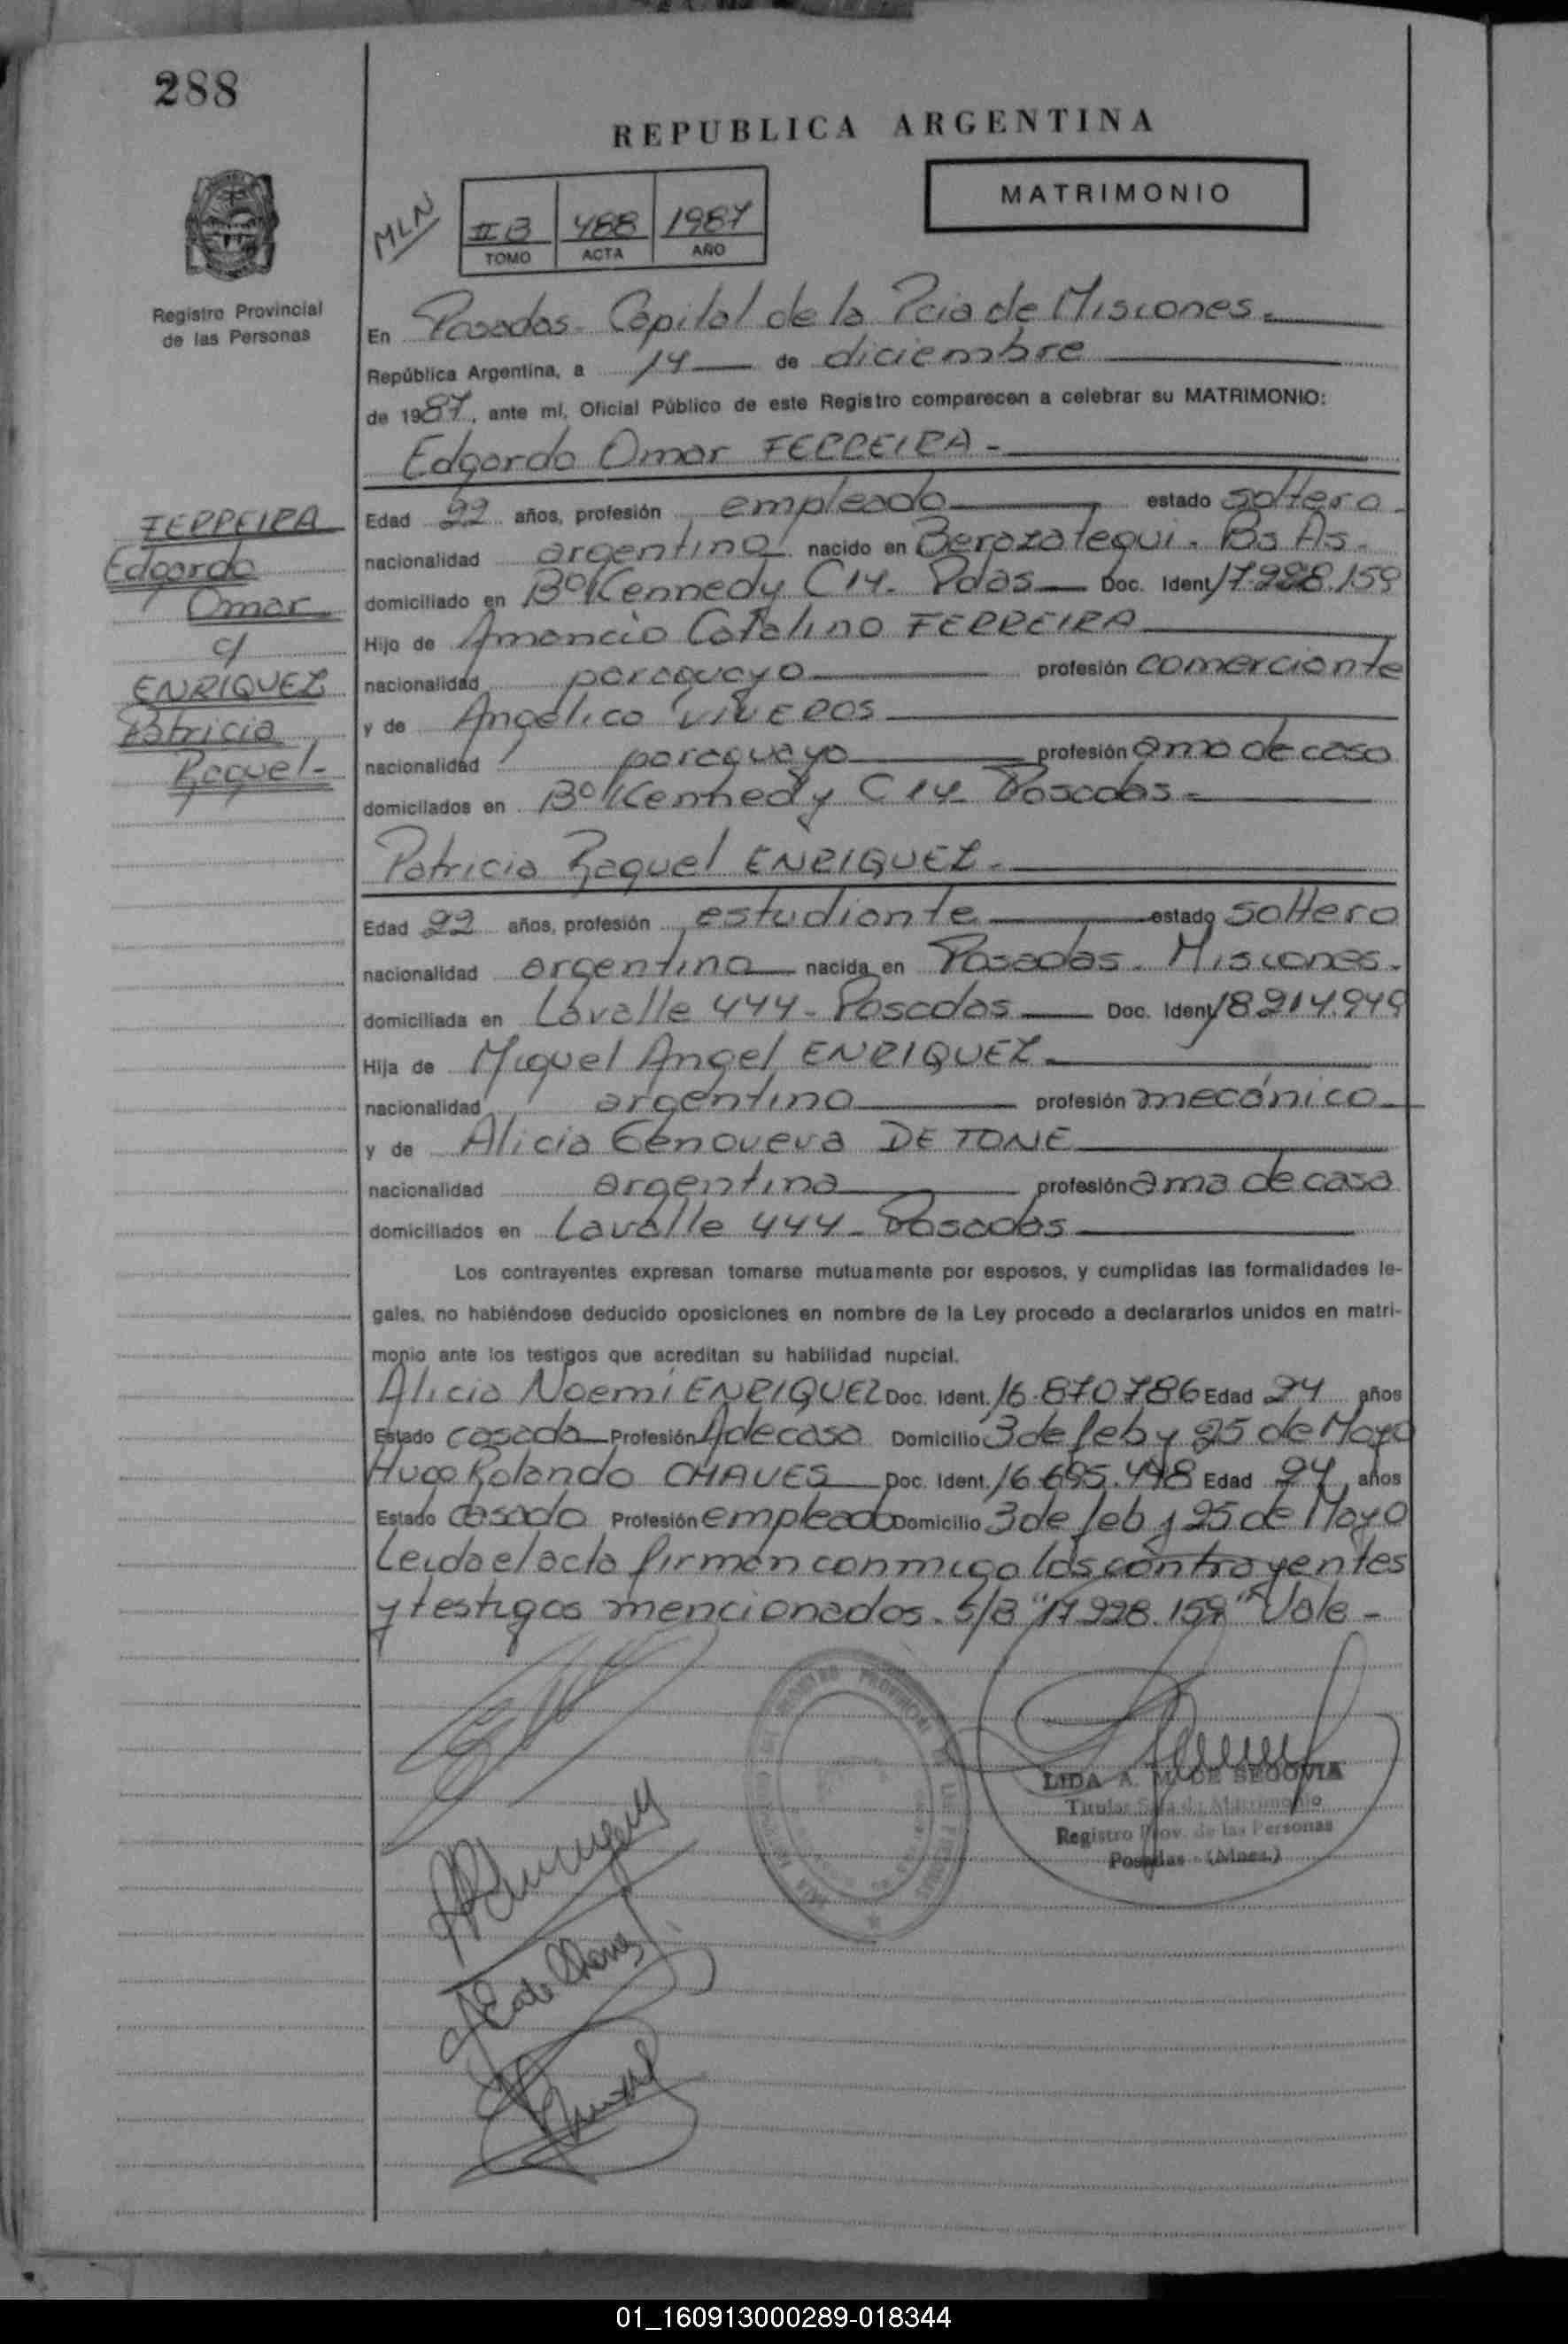 288
REPUBLICA ARGENTINA
MATRIMONIO
MLN
II B 488 1987
TOMO ACTA AÑO
Registro Provincial
de las Personas
En Posadas. Capital de la Pcia de Misiones.
República Argentina, a 14 de diciembre
de 1987, ante mí, Oficial Público de este Registro comparecen a celebrar su MATRIMONIO:
Edgardo Omar FERREIRA -
FERREIRA
Edgardo
Omar
c/
ENRIQUEZ
Patricia
Raquel-
Edad 22 años, profesión empleado estado soltero
nacionalidad argentina nacido en Berazategui. Bs As.
domiciliado en B° Kennedy C 14. Pdas Doc. Ident 17.928.159
Hijo de Amancio Catalino FERREIRA
nacionalidad paraguaya profesión comerciante
y de Angélica VIVEROS
nacionalidad paraguaya profesión ama de casa
domiciliados en B° Kennedy C 14 Posadas.
Patricia Raquel ENRIQUEZ.
Edad 22 años, profesión estudiante estado soltera
nacionalidad argentina nacida en Posadas. Misiones.
domiciliada en Lavalle 444. Posadas Doc. Ident 18.214.949
Hija de Miguel Angel ENRIQUEZ.
nacionalidad argentina profesión mecánico
y de Alicia Genoveva DE TONE
nacionalidad argentina profesión ama de casa
domiciliados en Lavalle 444. Posadas
Los contrayentes expresan tomarse mutuamente por esposos, y cumplidas las formalidades le-
gales, no habiéndose deducido oposiciones en nombre de la Ley procedo a declararlos unidos en matri-
monio ante los testigos que acreditan su habilidad nupcial.
Alicia Noemí ENRIQUEZ Doc. Ident. 16.870.786 Edad 24 años
Estado casada Profesión A de casa Domicilio 3 de feb y 25 de Mayo
Hugo Rolando CHAVES Doc. Ident. 16.695.498 Edad 24 años
Estado casado Profesión empleado Domicilio 3 de feb y 25 de Mayo
Leida el acta firman conmigo los contrayentes
y testigos mencionados. S/B "17.928.159" Vale -
LIDA A. M. DE SEGOVIA
Titular Sala de Matrimonio
Registro Prov. de las Personas
Posadas - (Mnes.)
01_160913000289-018344